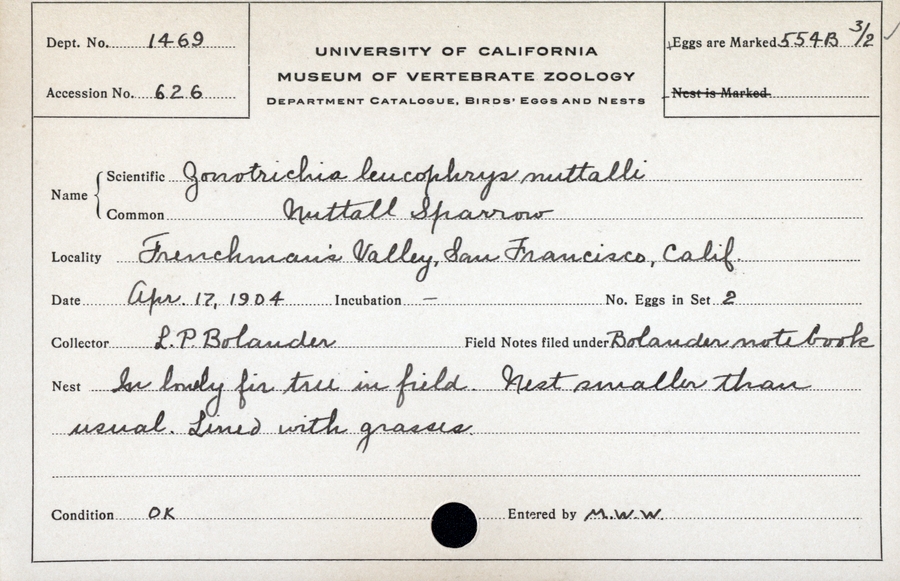 Dept. No. 1469
Accession No. 626
UNIVERSITY OF CALIFORNIA
MUSEUM OF VERTEBRATE ZOOLOGY
DEPARTMENT CATALOGUE, BIRDS' EGGS AND NESTS
Eggs are Marked 554B 3/2 ✓
Nest is Marked
Name { Scientific Zonotrichia leucophrys nuttalli
Common Nuttall Sparrow
Locality Frenchman's Valley, San Francisco, Calif.
Date Apr. 17, 1904 Incubation — No. Eggs in Set 2
Collector L.P. Bolander Field Notes filed under Bolander notebook
Nest In lonely fir tree in field. Nest smaller than
usual. Lined with grasses.
Condition OK Entered by M.W.W.